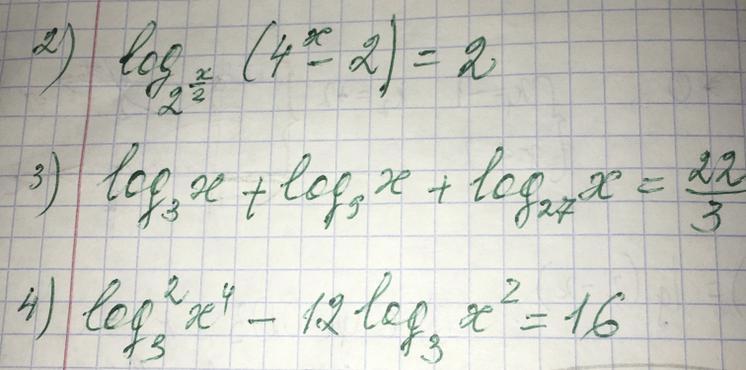 2) log_{2^{x/2}} (4^x - 2) = 2
3) log_3 x + log_9 x + log_{27} x = 22/3
4) log_3^2 x^4 - 12 log_3 x^2 = 16